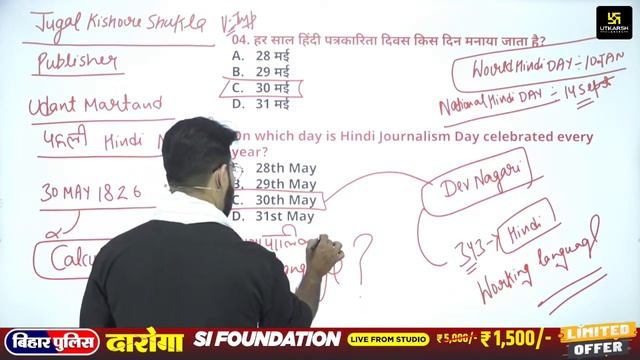 Jugal Kishore Shukla
V. Imp
UTKARSH
Publisher
04. हर साल हिंदी पत्रकारिता दिवस किस दिन मनाया जाता है?
A. 28 मई
B. 29 मई
C. 30 मई
D. 31 मई
World Hindi DAY - 10 JAN
National Hindi DAY - 14 Sept
Udant Martand
पहली Hindi
30 MAY 1826
on which day is Hindi Journalism Day celebrated every
year?
28th May
B. 29th May
C. 30th May
D. 31st May
Dev Nagari
343 → Hindi
Working language
?
बिहार पुलिस दारोगा SI FOUNDATION LIVE FROM STUDIO ₹5,000/- ₹1,500/- LIMITED
OFFER